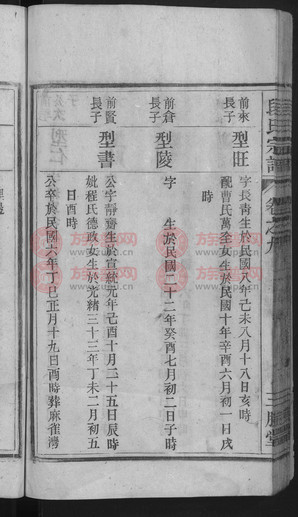 段氏宗譜
卷之九
三鵬堂
前來長子
型旺
字長青生於民國八年己未八月十八日亥時
配曹氏萬全女生於民國十年辛酉六月初一日戌時
前倉長子
型陵
字 生於民國二十二年癸酉七月初二日子時
前賢長子
型書
公字靜齋生於宣統元年己酉十月二十五日辰時
妣程氏德政女生於光緒三十三年丁未二月初五日酉時
公卒於民國十六年丁巳正月十九日酉時葬麻雀灣